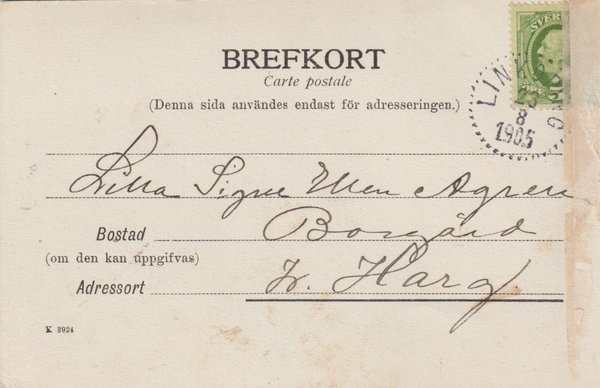 BREFKORT
Carte postale
(Denna sida användes endast för adresseringen.)
SVERI
LINKÖPING
23
8
1905
Lilla Signe Ellen Agren
Bostad Borgård
(om den kan uppgifvas)
Adressort Harg
K 3924